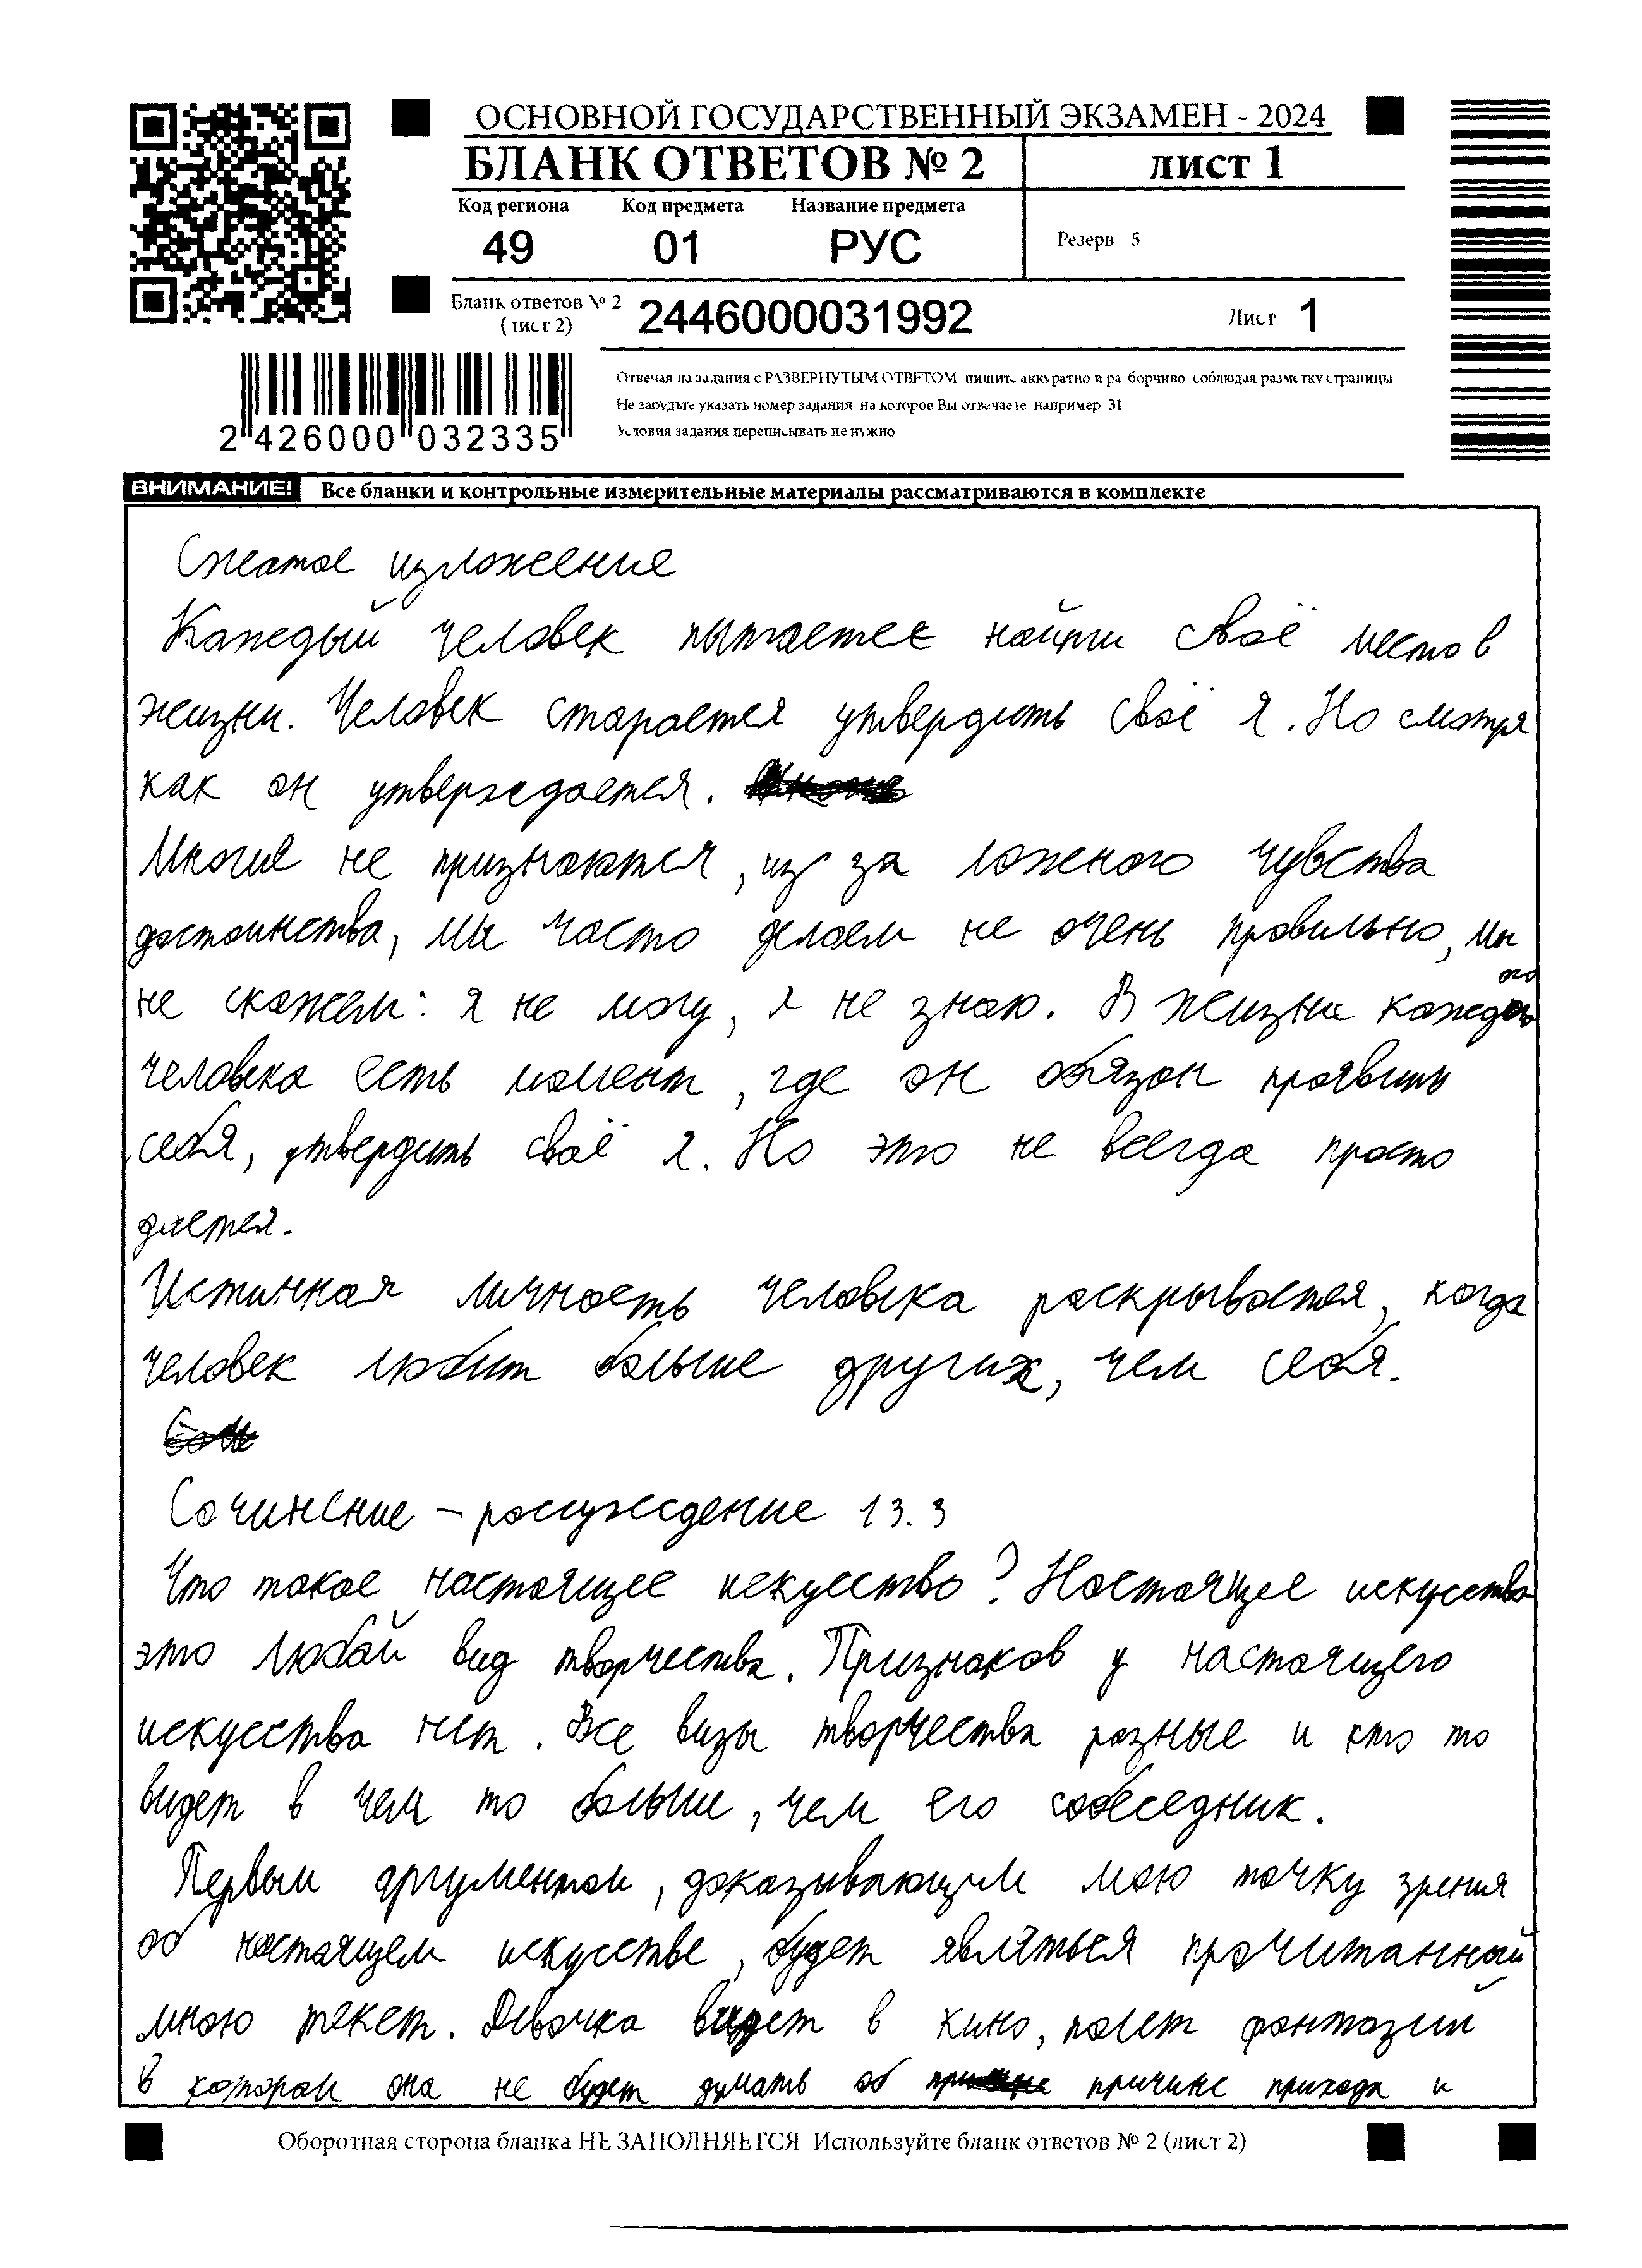 ОСНОВНОЙ ГОСУДАРСТВЕННЫЙ ЭКЗАМЕН - 2024
БЛАНК ОТВЕТОВ № 2
ЛИСТ 1
Код региона Код предмета Название предмета
49 01 РУС
Резерв 5
Бланк ответов № 2
(лист 2)
2446000031992
Лист 1
Отвечая на задания с РАЗВЕРНУТЫМ ОТВЕТОМ пишите аккуратно и разборчиво соблюдая разметку страницы
Не забудьте указать номер задания на которое Вы отвечаете например 31
Условия задания переписывать не нужно
2 426000 032335
ВНИМАНИЕ! Все бланки и контрольные измерительные материалы рассматриваются в комплекте
Сжатое изложение
Каждый человек пытается найти своё место в
жизни. Человек старается утвердить своё я. Но смотря
как он утверждается.
Многие не признаются, из за ложного чувства
достоинства, мы часто делаем не очень правильно, мы
не скажем: я не могу, я не знаю. В жизни каждого
человека есть момент, где он обязан проявить
себя, утвердить своё я. Но это не всегда просто
дается.
Истинная личность человека раскрывается, когда
человек любит больше других, чем себя.
Сочинение - рассуждение 13.3
Что такое настоящее искусство? Настоящее искусство
это любой вид творчества. Признаков у настоящего
искусства нет. Все визы творчества разные и кто то
видет в чем то больше, чем его собеседник.
Первым аргументом, доказывающим мою точку зрения
об настоящем искусстве, будет являться прочитанный
мною текст. Девочка видет в кино, полет фантазии
в котором она не будет думать об причине прихода и
Оборотная сторона бланка НЕ ЗАПОЛНЯЕТСЯ Используйте бланк ответов № 2 (лист 2)